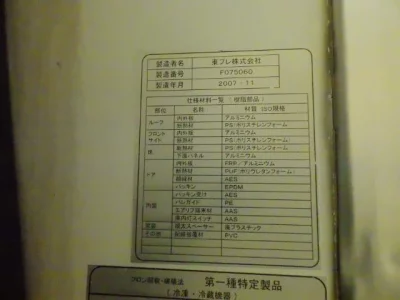 製造者名 東プレ株式会社
製造番号 F075060
製造年月 2007・11
仕様材料一覧（樹脂部品）
部位 名称 材質 ISO規格
ルーフ 内外板 アルミニウム
断熱材 PS(ポリスチレンフォーム)
フロント サイド 内外板 アルミニウム
断熱材 PS(ポリスチレンフォーム)
床 断熱材 PS(ポリスチレンフォーム)
下面パネル アルミニウム
ドア 内外板 FRP/アルミニウム
断熱材 PUF(ポリウレタンフォーム)
AES
パッキン EPDM
パッキン受け AES
PE
AAS
AAS
スペーサー 廃プラスチック
その他 PVC
フロン回収・破壊法 第一種特定製品
（冷凍・冷蔵機器）